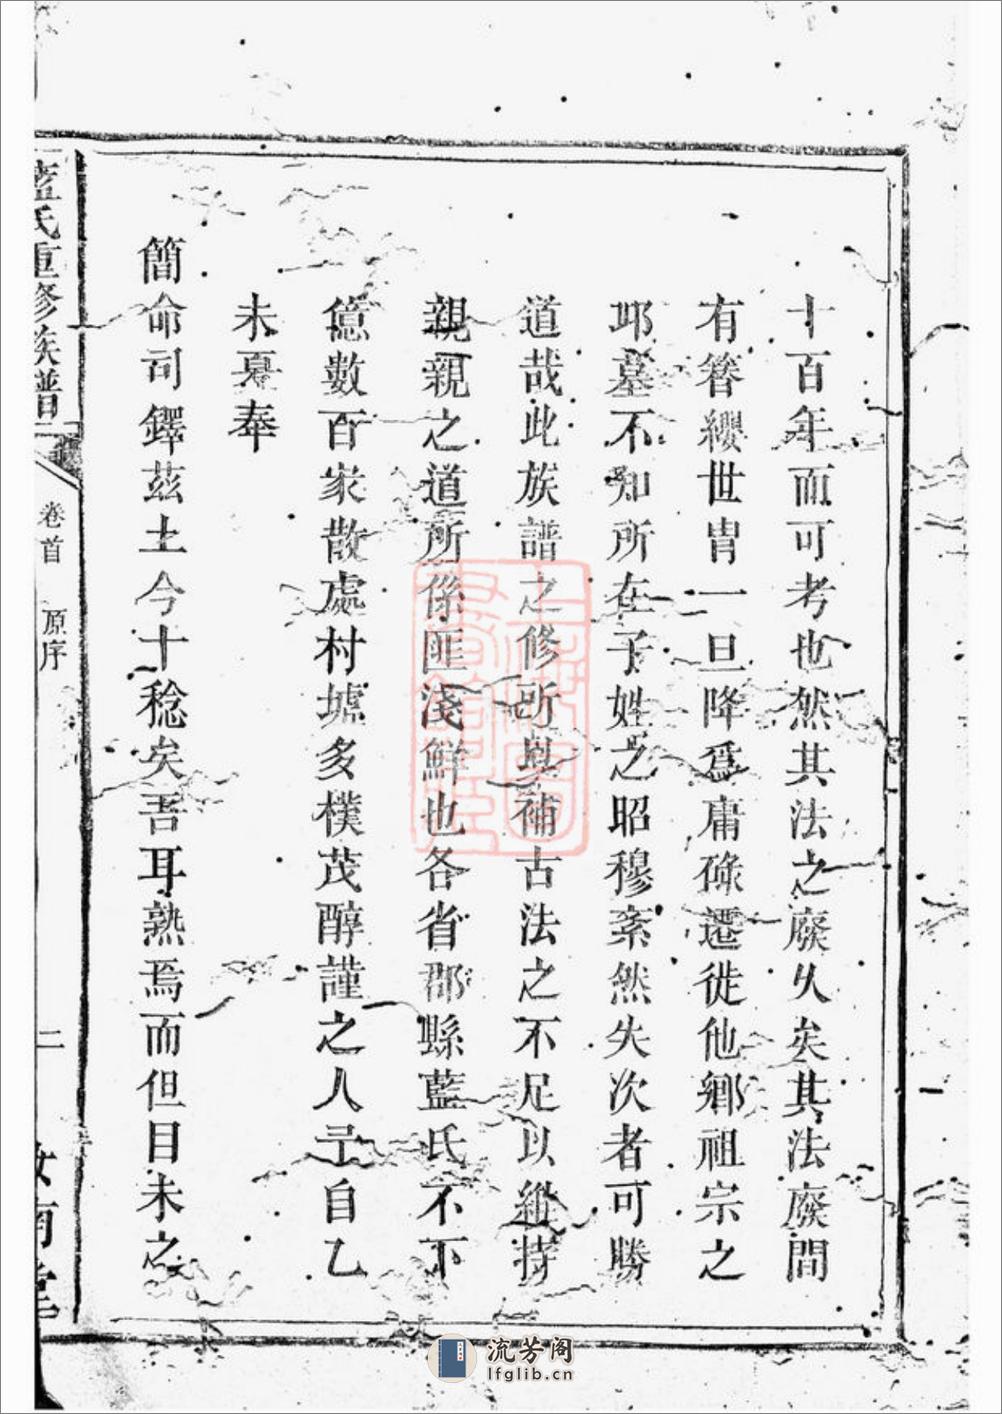 十百年而可考也然其法之廢久矣其法廢間
有簪纓世胄一旦降爲庸碌遷徙他鄉祖宗之
邱墓不知所在子姓之昭穆紊然失次者可勝
道哉此族譜之修所以補古法之不足以維持
親親之道所係匪淺鮮也各省郡縣藍氏不下
億數百家散處村墟多樸茂醇謹之人予自乙
未夏奉
簡命司鐸茲土今十稔矣吾耳熟焉而但目未之
藍氏重修族譜
卷首 原序
二
汝南堂
流芳阁
lfglib.cn